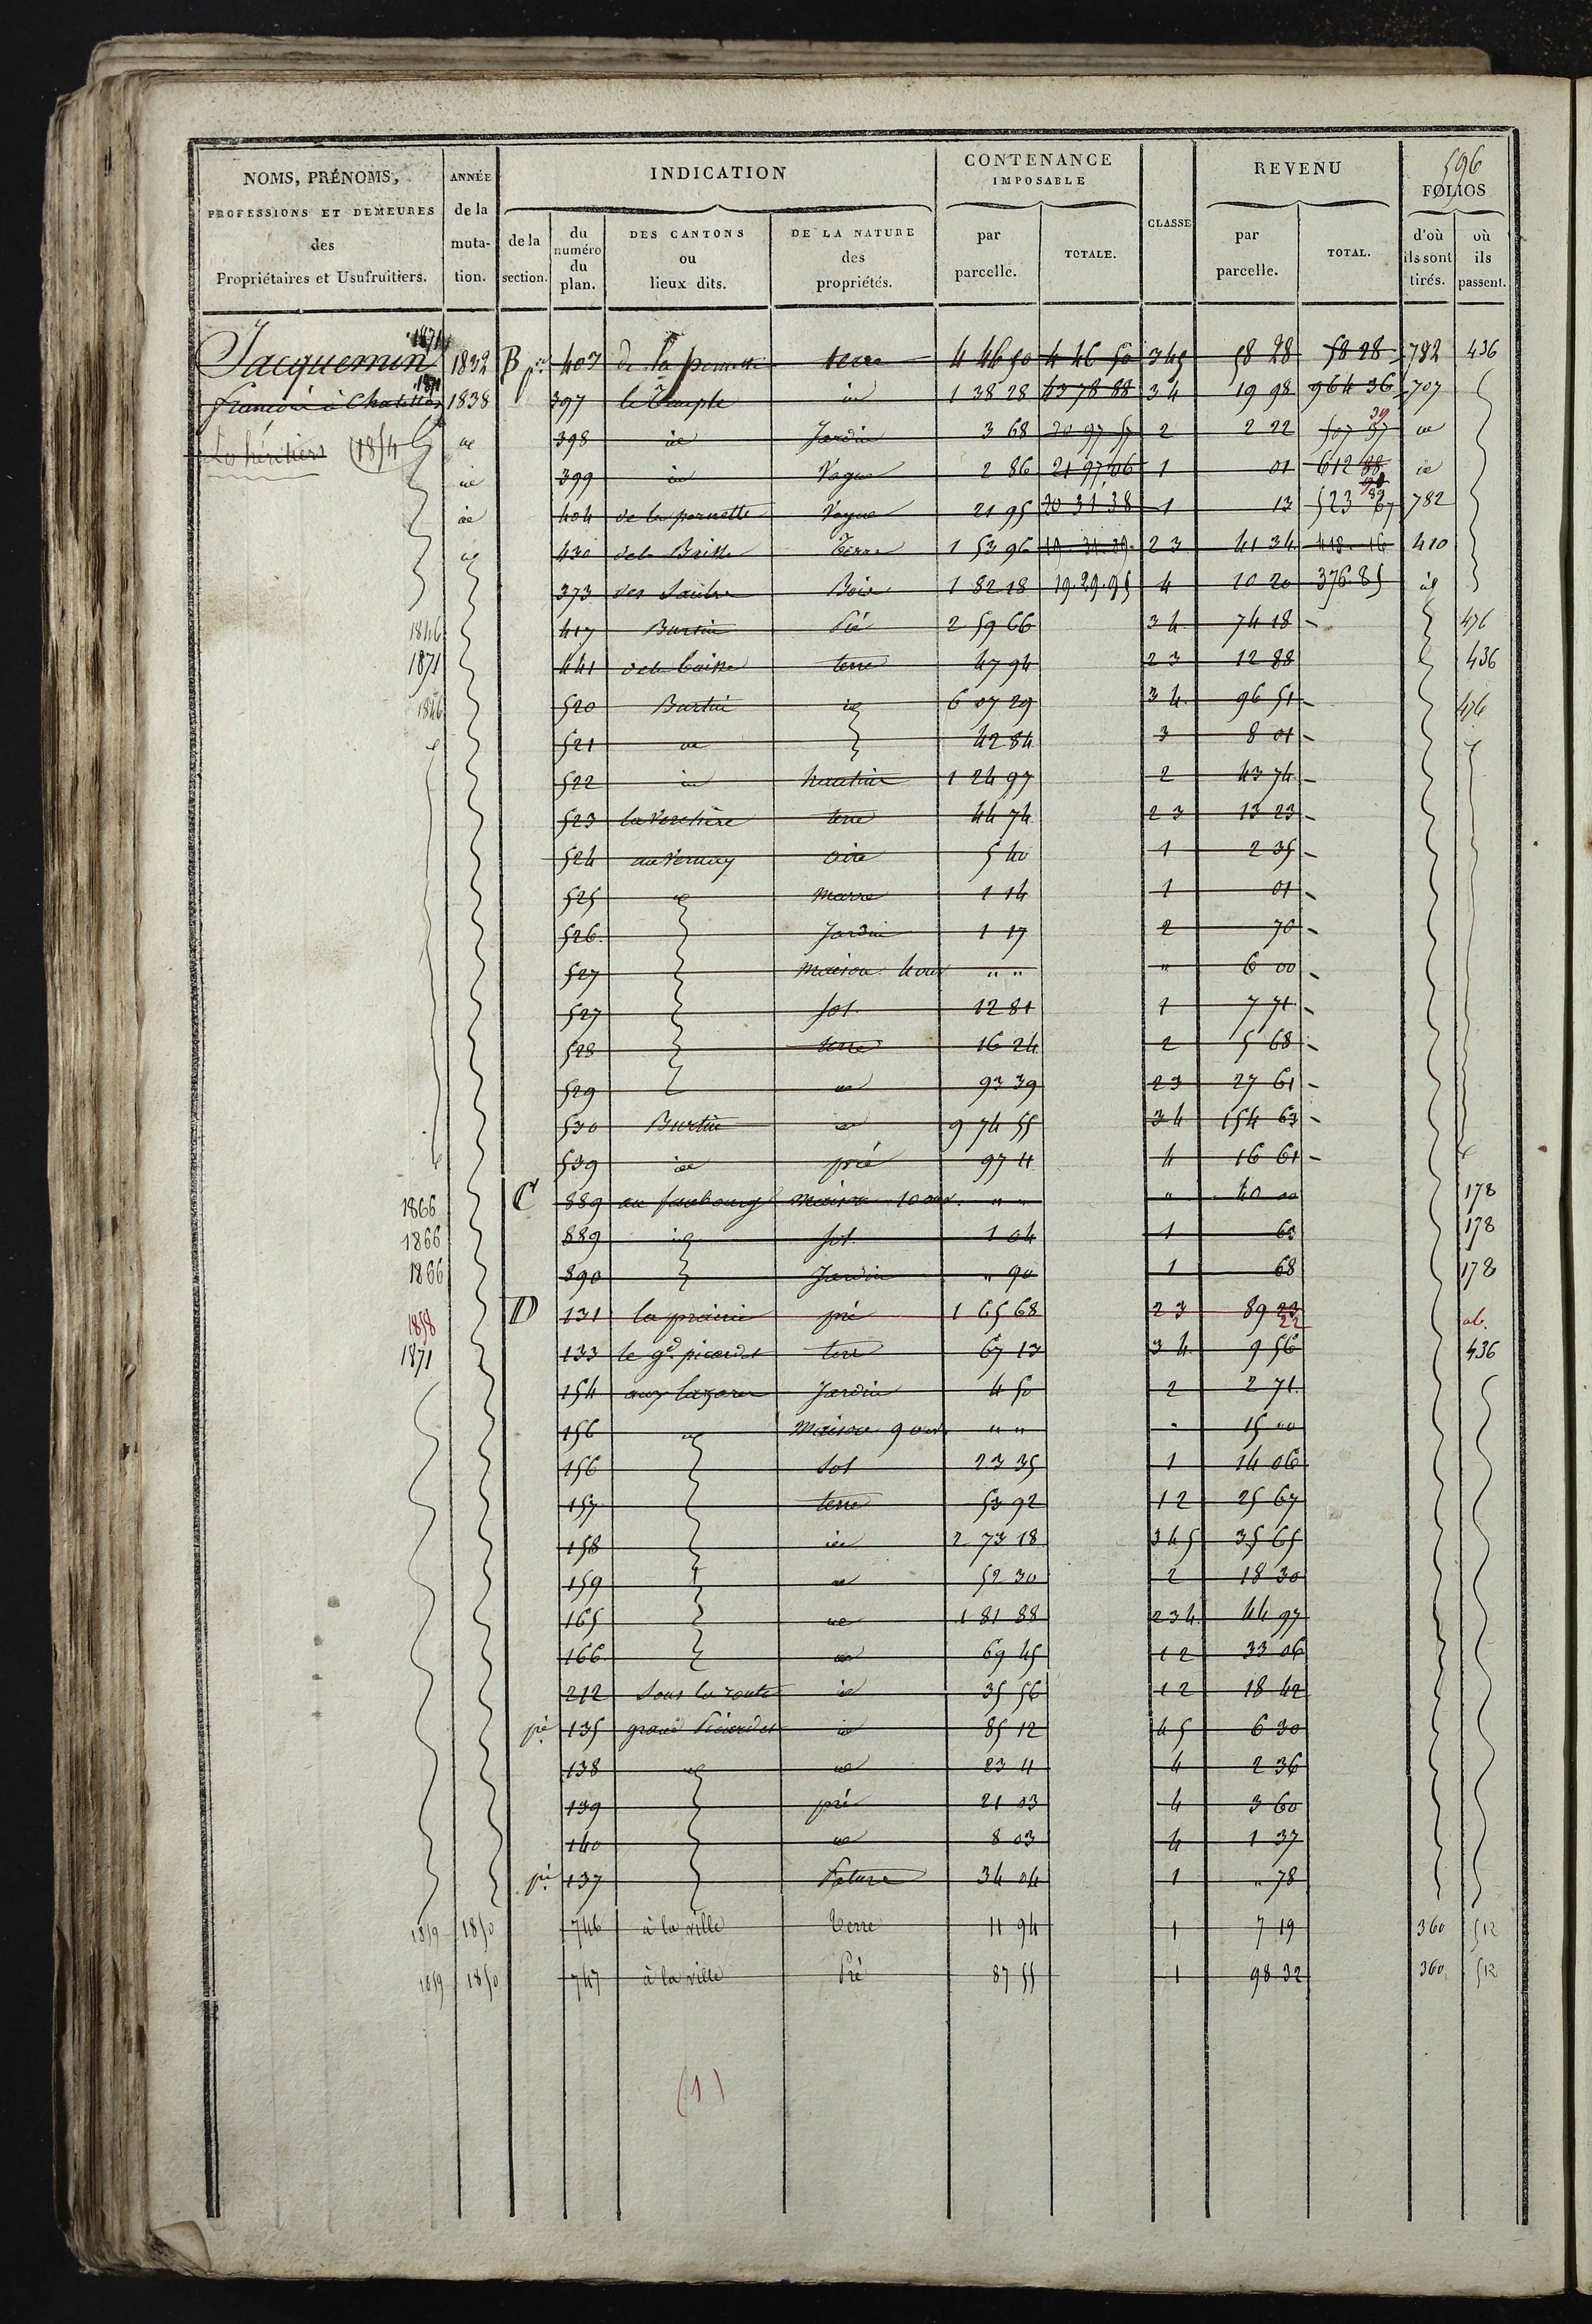 596
NOMS, PRÉNOMS,
PROFESSIONS ET DEMEURES
des
Propriétaires et Usufruitiers.
ANNÉE
de la
muta-
tion.
INDICATION
de la
section.
du
numéro
du
plan.
DES CANTONS
ou
lieux dits.
DE LA NATURE
des
propriétés.
CONTENANCE
IMPOSABLE
par
parcelle.
TOTALE.
CLASSE
REVENU
par
parcelle.
TOTAL.
FOLIOS
d'où
ils sont
tirés.
où
ils
passent.
1871
Jacquemin 1832 B pie 407 de la pernette terre 4 46 50 4 46 50 345 58 28 58 28 782 436
françois à Chatillon 1838 397 le Temple id 1 38 28 43 78 88 34 19 98 964 36 707
Les héritiers (1854) id 398 id Jardin 3 68 20 97 57 2 2 22 507 37 id
id 399 id Vague 2 86 21 97 06 1 01 612 88 id
id 404 de la pernette Vague 21 95 20 31 38 1 13 523 67 782
id 430 Terre 1 53 96 23 41 34 418 16 410
373 Bois 1 82 18 19.29.95 4 10 20 376.85 id
1846 417 Burtin Pré 2 59 66 34 74 18 476
1871 441 terre 47 94 23 12 88 436
1846 520 Burtin id 6 07 29 34 96 51 476
id 521 id 42 84 3 8 01
522 id hautin 1 24 97 2 43 74
523 la Verchère terre 44 74 23 13 23
524 au Vernay aire 5 40 1 2 35
525 id marre 1 14 1 01
526 Jardin 1 17 2 70
527 Maison 4 ouv " " " 6 00
527 sol 12 81 1 7 71
528 terre 16 24 2 5 68
529 id 93 39 23 27 61
530 Burtin id 9 74 55 34 154 63
539 id pré 97 11 4 16 61
1866 C 889 au faubourg Maison 10 ouv. " " " 40 00 178
1866 889 id sol 1 04 1 63 178
1866 890 Jardin " 90 1 68 178
1858 D 131 la prairie pré 1 65 68 23 89 23 22
1871 133 le gd. picardet terre 67 13 34 9 56 436
154 aux lazares Jardin 4 50 2 2 71
156 id Maison 9 ouv. " " " 15 00
156 Sol 23 35 1 14 06
157 terre 53 92 12 25 67
158 id 2 73 18 345 35 65
159 id 52 30 2 18 30
165 id 1 81 88 234 44 97
166 id 69 45 12 33 06
212 Sous la route id 35 56 12 18 42
pie 135 grand Picardet id 85 12 45 6 30
138 id id 23 11 4 2 36
139 pré 21 03 4 3 60
140 id 8 03 4 1 37
pie 137 Pature 34 04 1 " 78
1859 1850 746 à la ville Terre 11 94 1 7 19 360 512
1859 1850 747 à la ville Pré 87 55 1 98 32 360 512
(1)